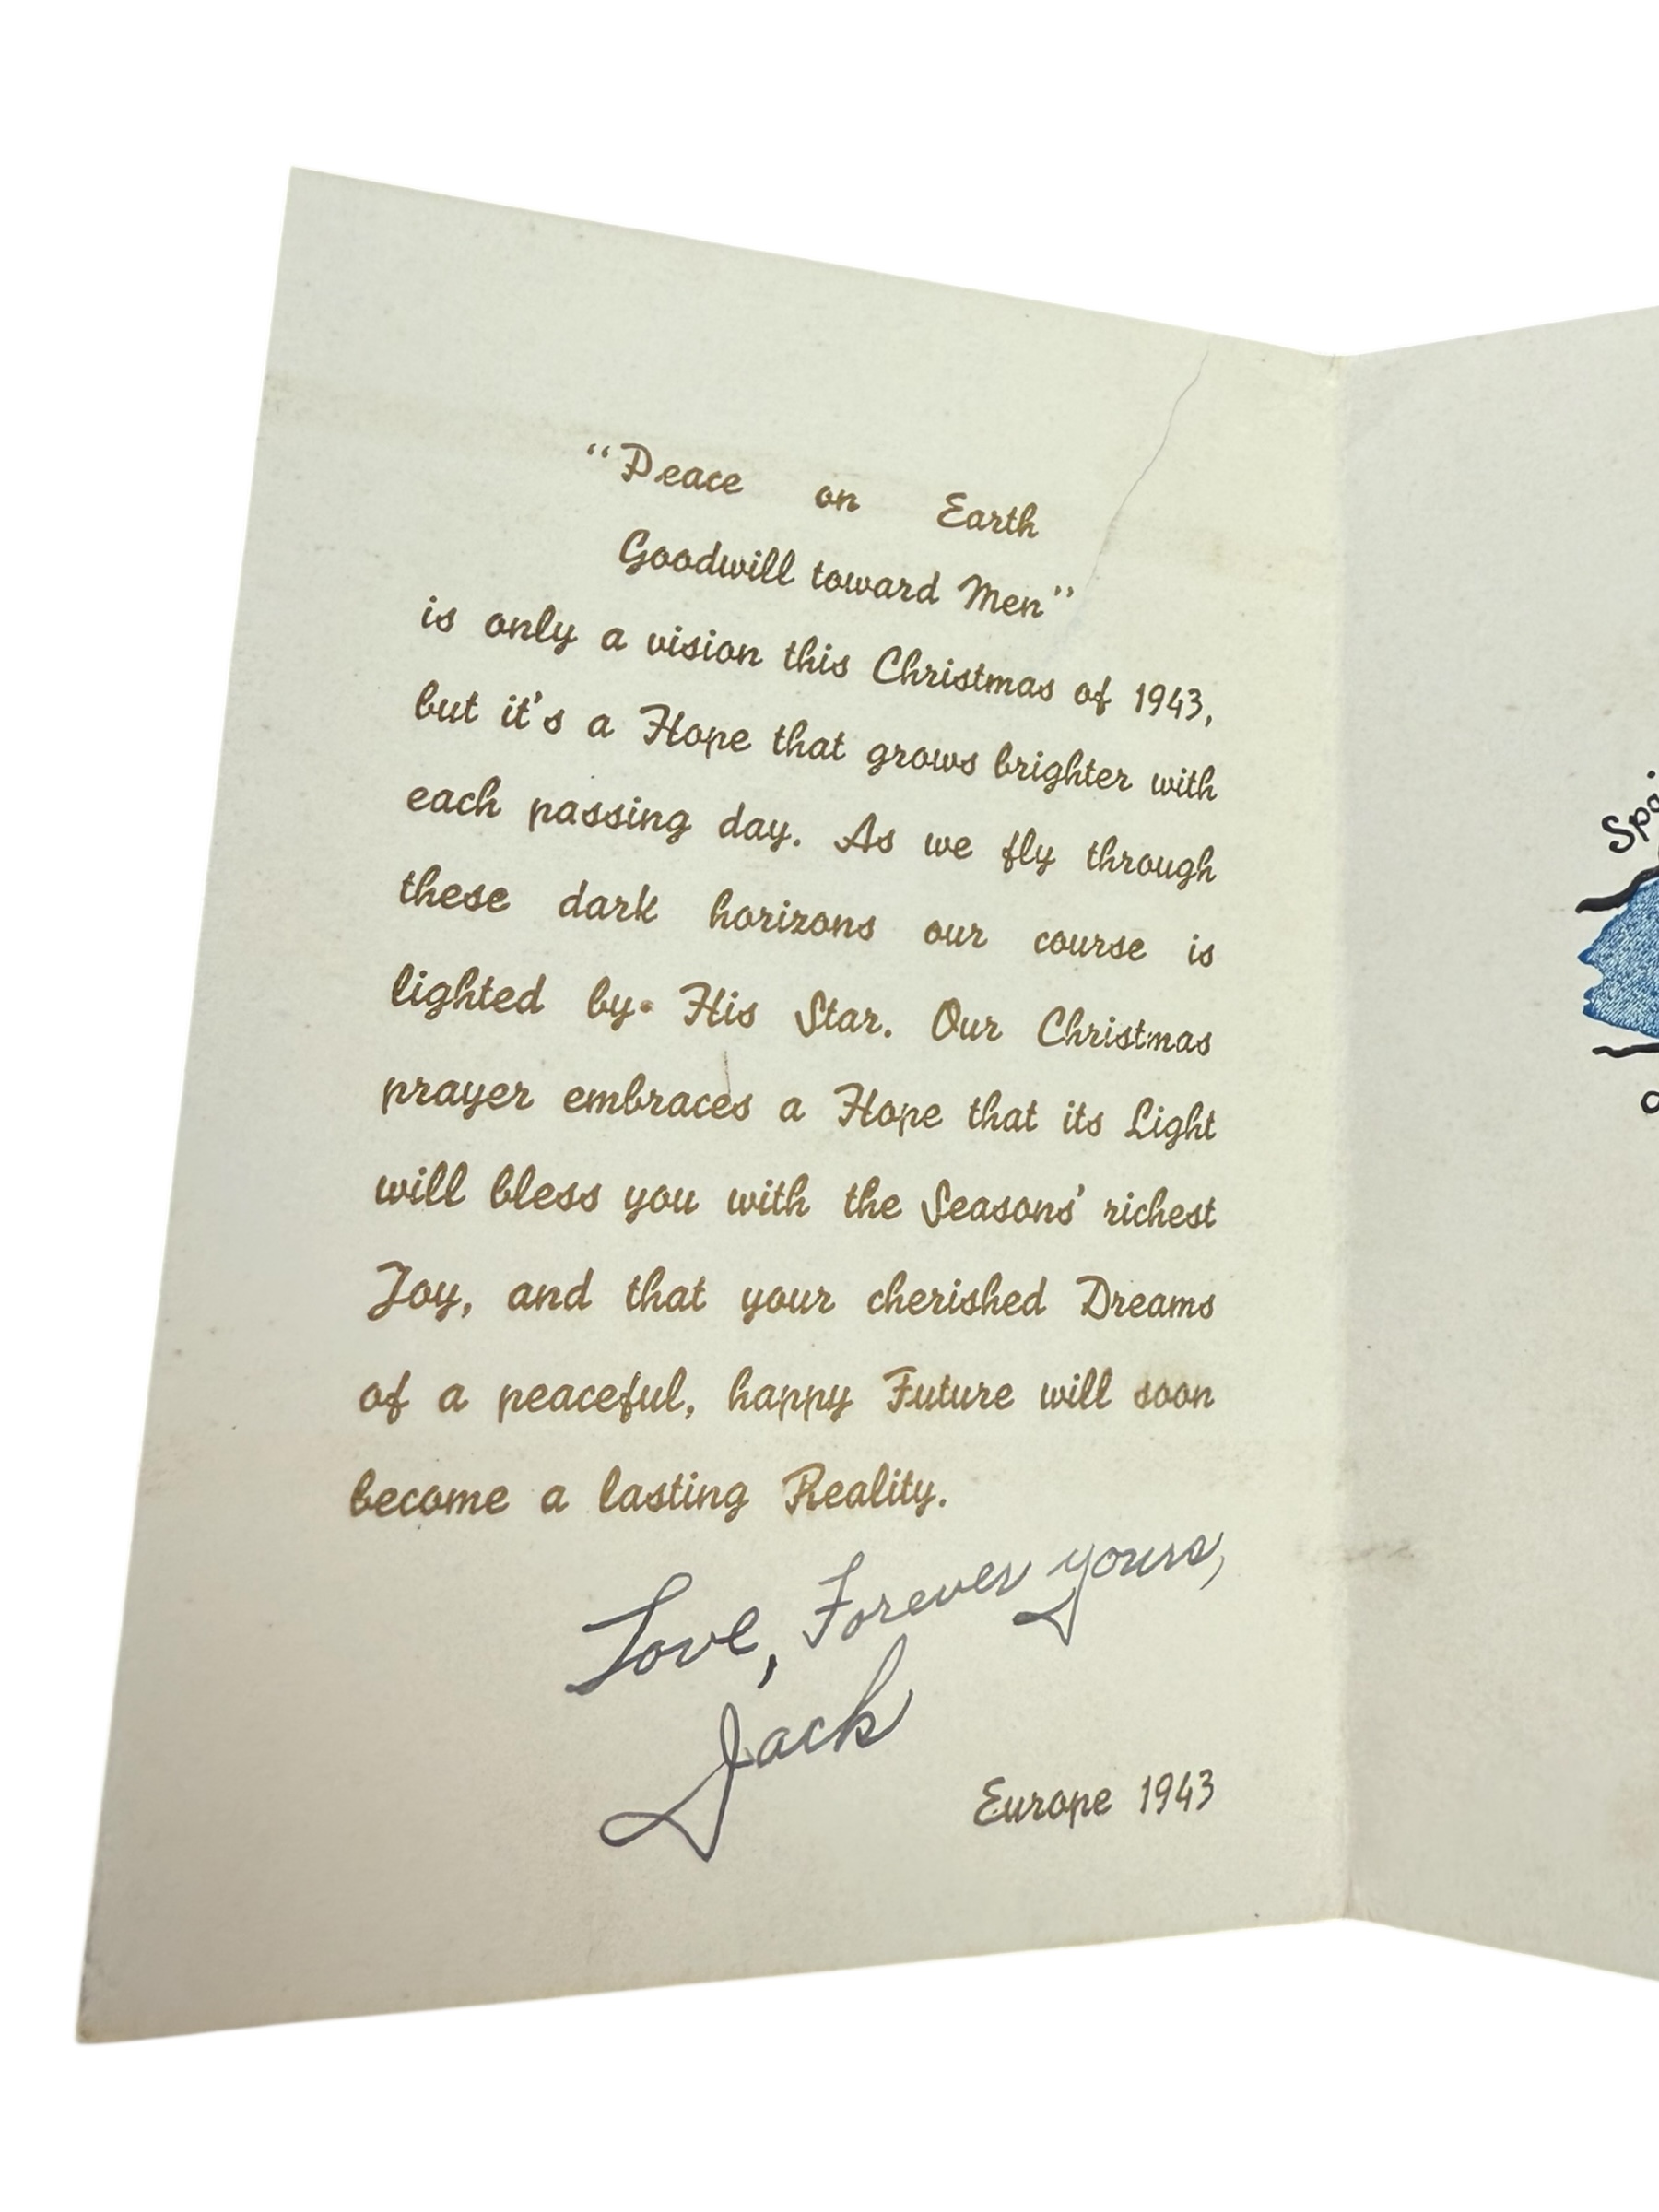 “Peace on Earth
Goodwill toward Men”
is only a vision this Christmas of 1943,
but it's a Hope that grows brighter with
each passing day. As we fly through
these dark horizons our course is
lighted by His Star. Our Christmas
prayer embraces a Hope that its Light
will bless you with the Seasons' richest
Joy, and that your cherished Dreams
of a peaceful, happy Future will soon
become a lasting Reality.
Love, Forever yours,
Jack
Europe 1943